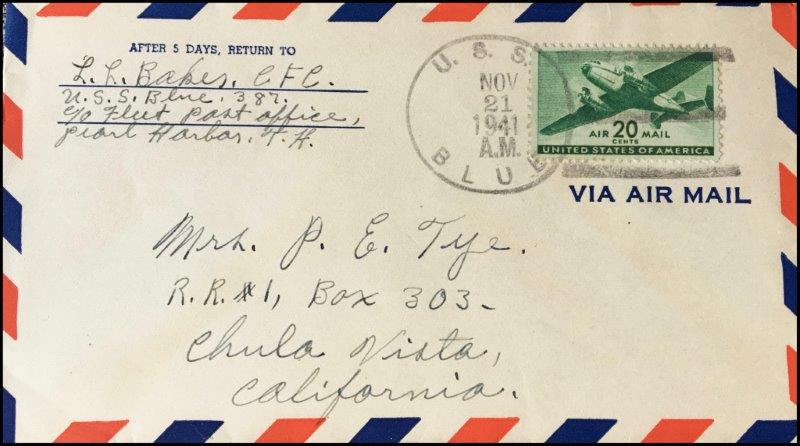 AFTER 5 DAYS, RETURN TO
L. L. Bakes, C.F.C.
U.S.S. Blue, 387.
c/o Fleet Post office,
Pearl Harbor, T.H.
U. S. S.
NOV
21
1941
A.M.
BLUE
AIR 20 MAIL
CENTS
UNITED STATES OF AMERICA
VIA AIR MAIL
Mrs. P. E. Tye.
R.R. #1, Box 303-
Chula Vista,
California.